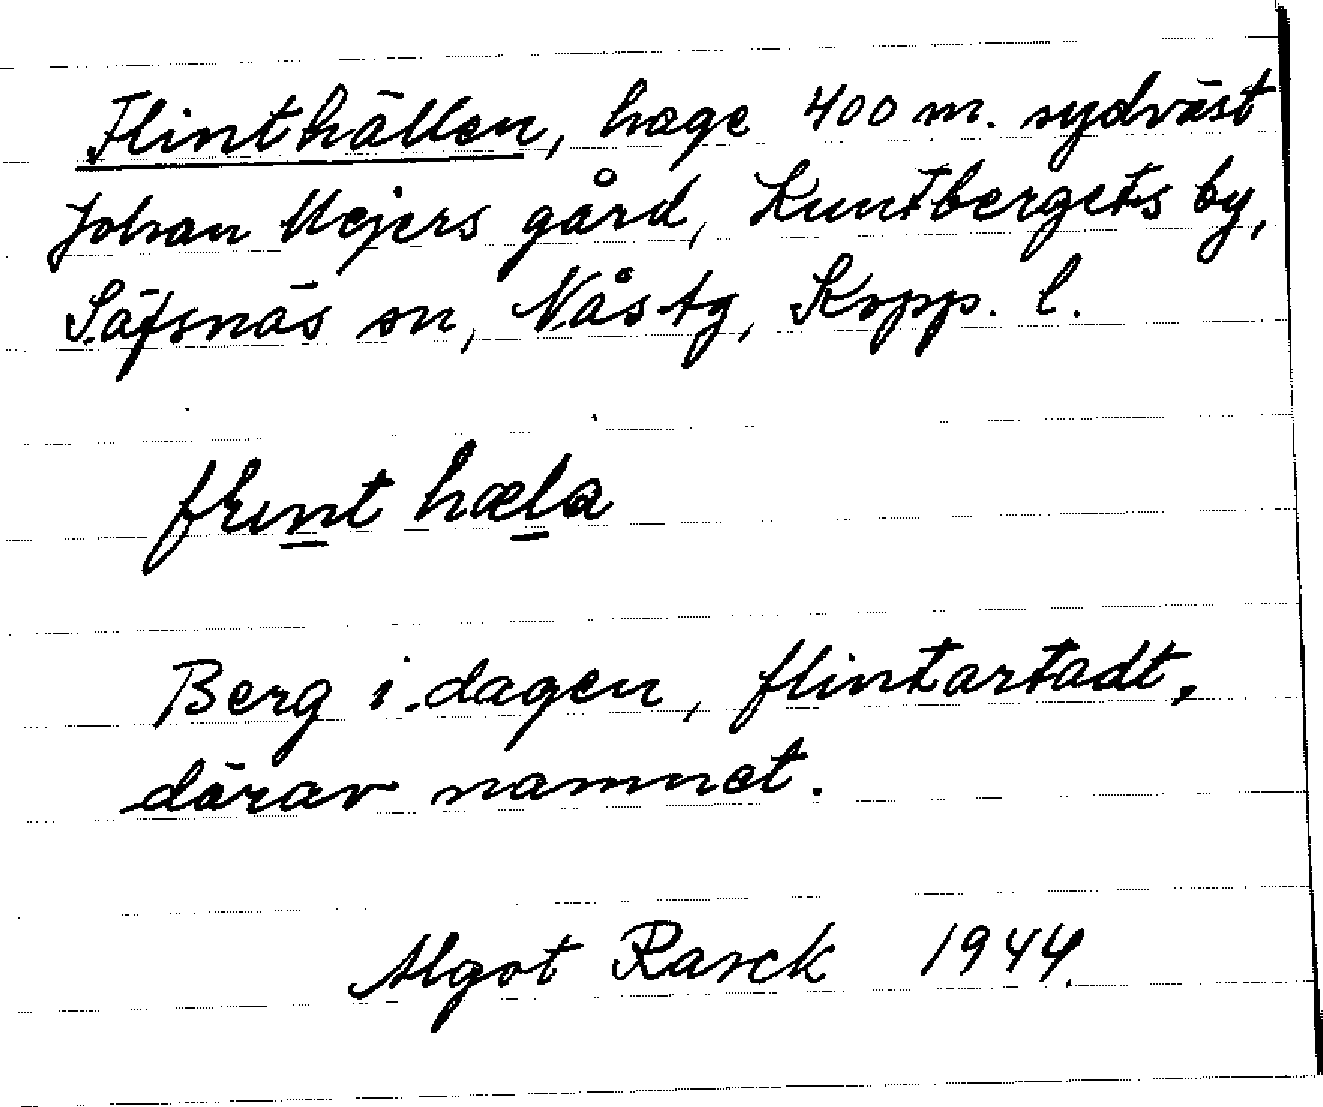 Flinthällen, hage 400 m. sydväst
Johan Mejers gård, Kuntbergets by,
Säfsnäs sn, Nås tg, Kopp. l.
flint hæla
Berg i dagen, flintartadt,
därav namnet.
Algot Rasck 1944.